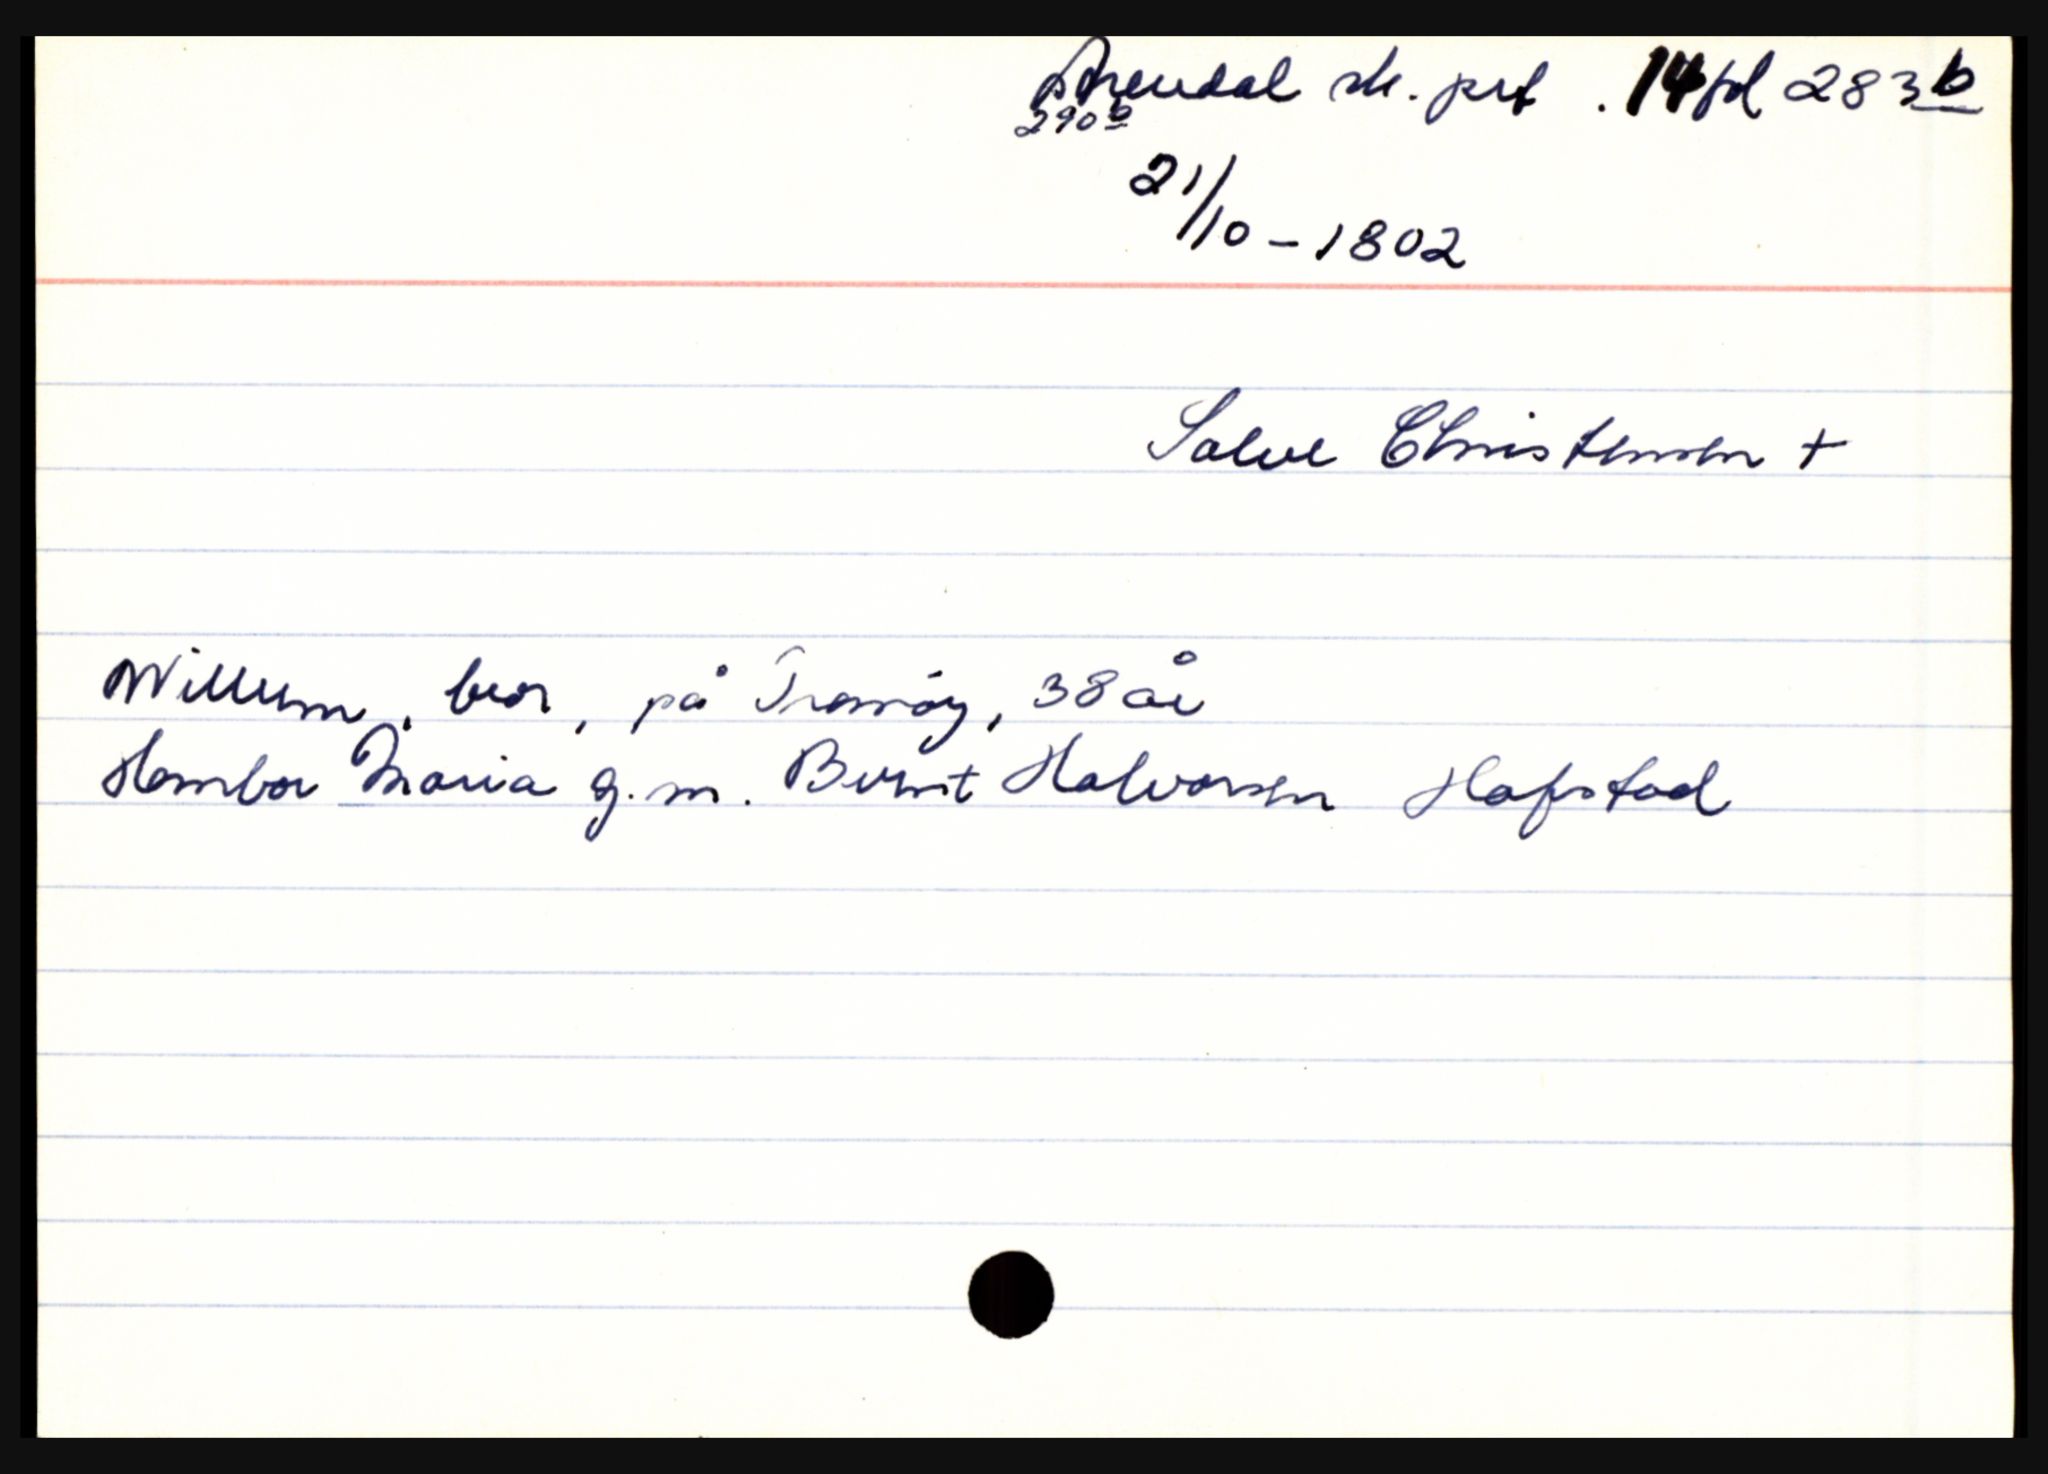 Arendal sk. prt. 14 fol 283b
290b
21/10 - 1802
Salve Christensen +
Willum, bor, på Tromöy, 38 år
Hombor Maria g.m. Bernt Halvorsen Hafstad